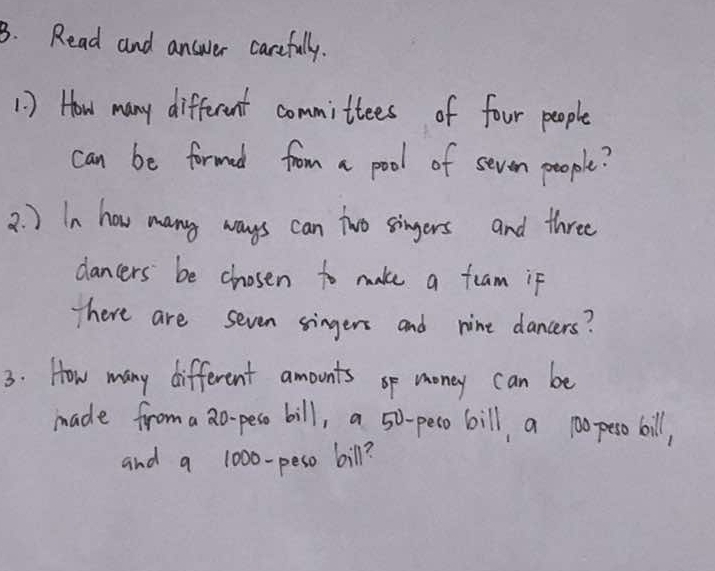 B. Read and answer carefully.
1.) How many different committees of four people
can be formed from a pool of seven people?
2.) In how many ways can two singers and three
dancers be chosen to make a team if
there are seven singers and nine dancers?
3. How many different amounts of money can be
made from a 20-peso bill, a 50-peso bill, a 100-peso bill,
and a 1000-peso bill?